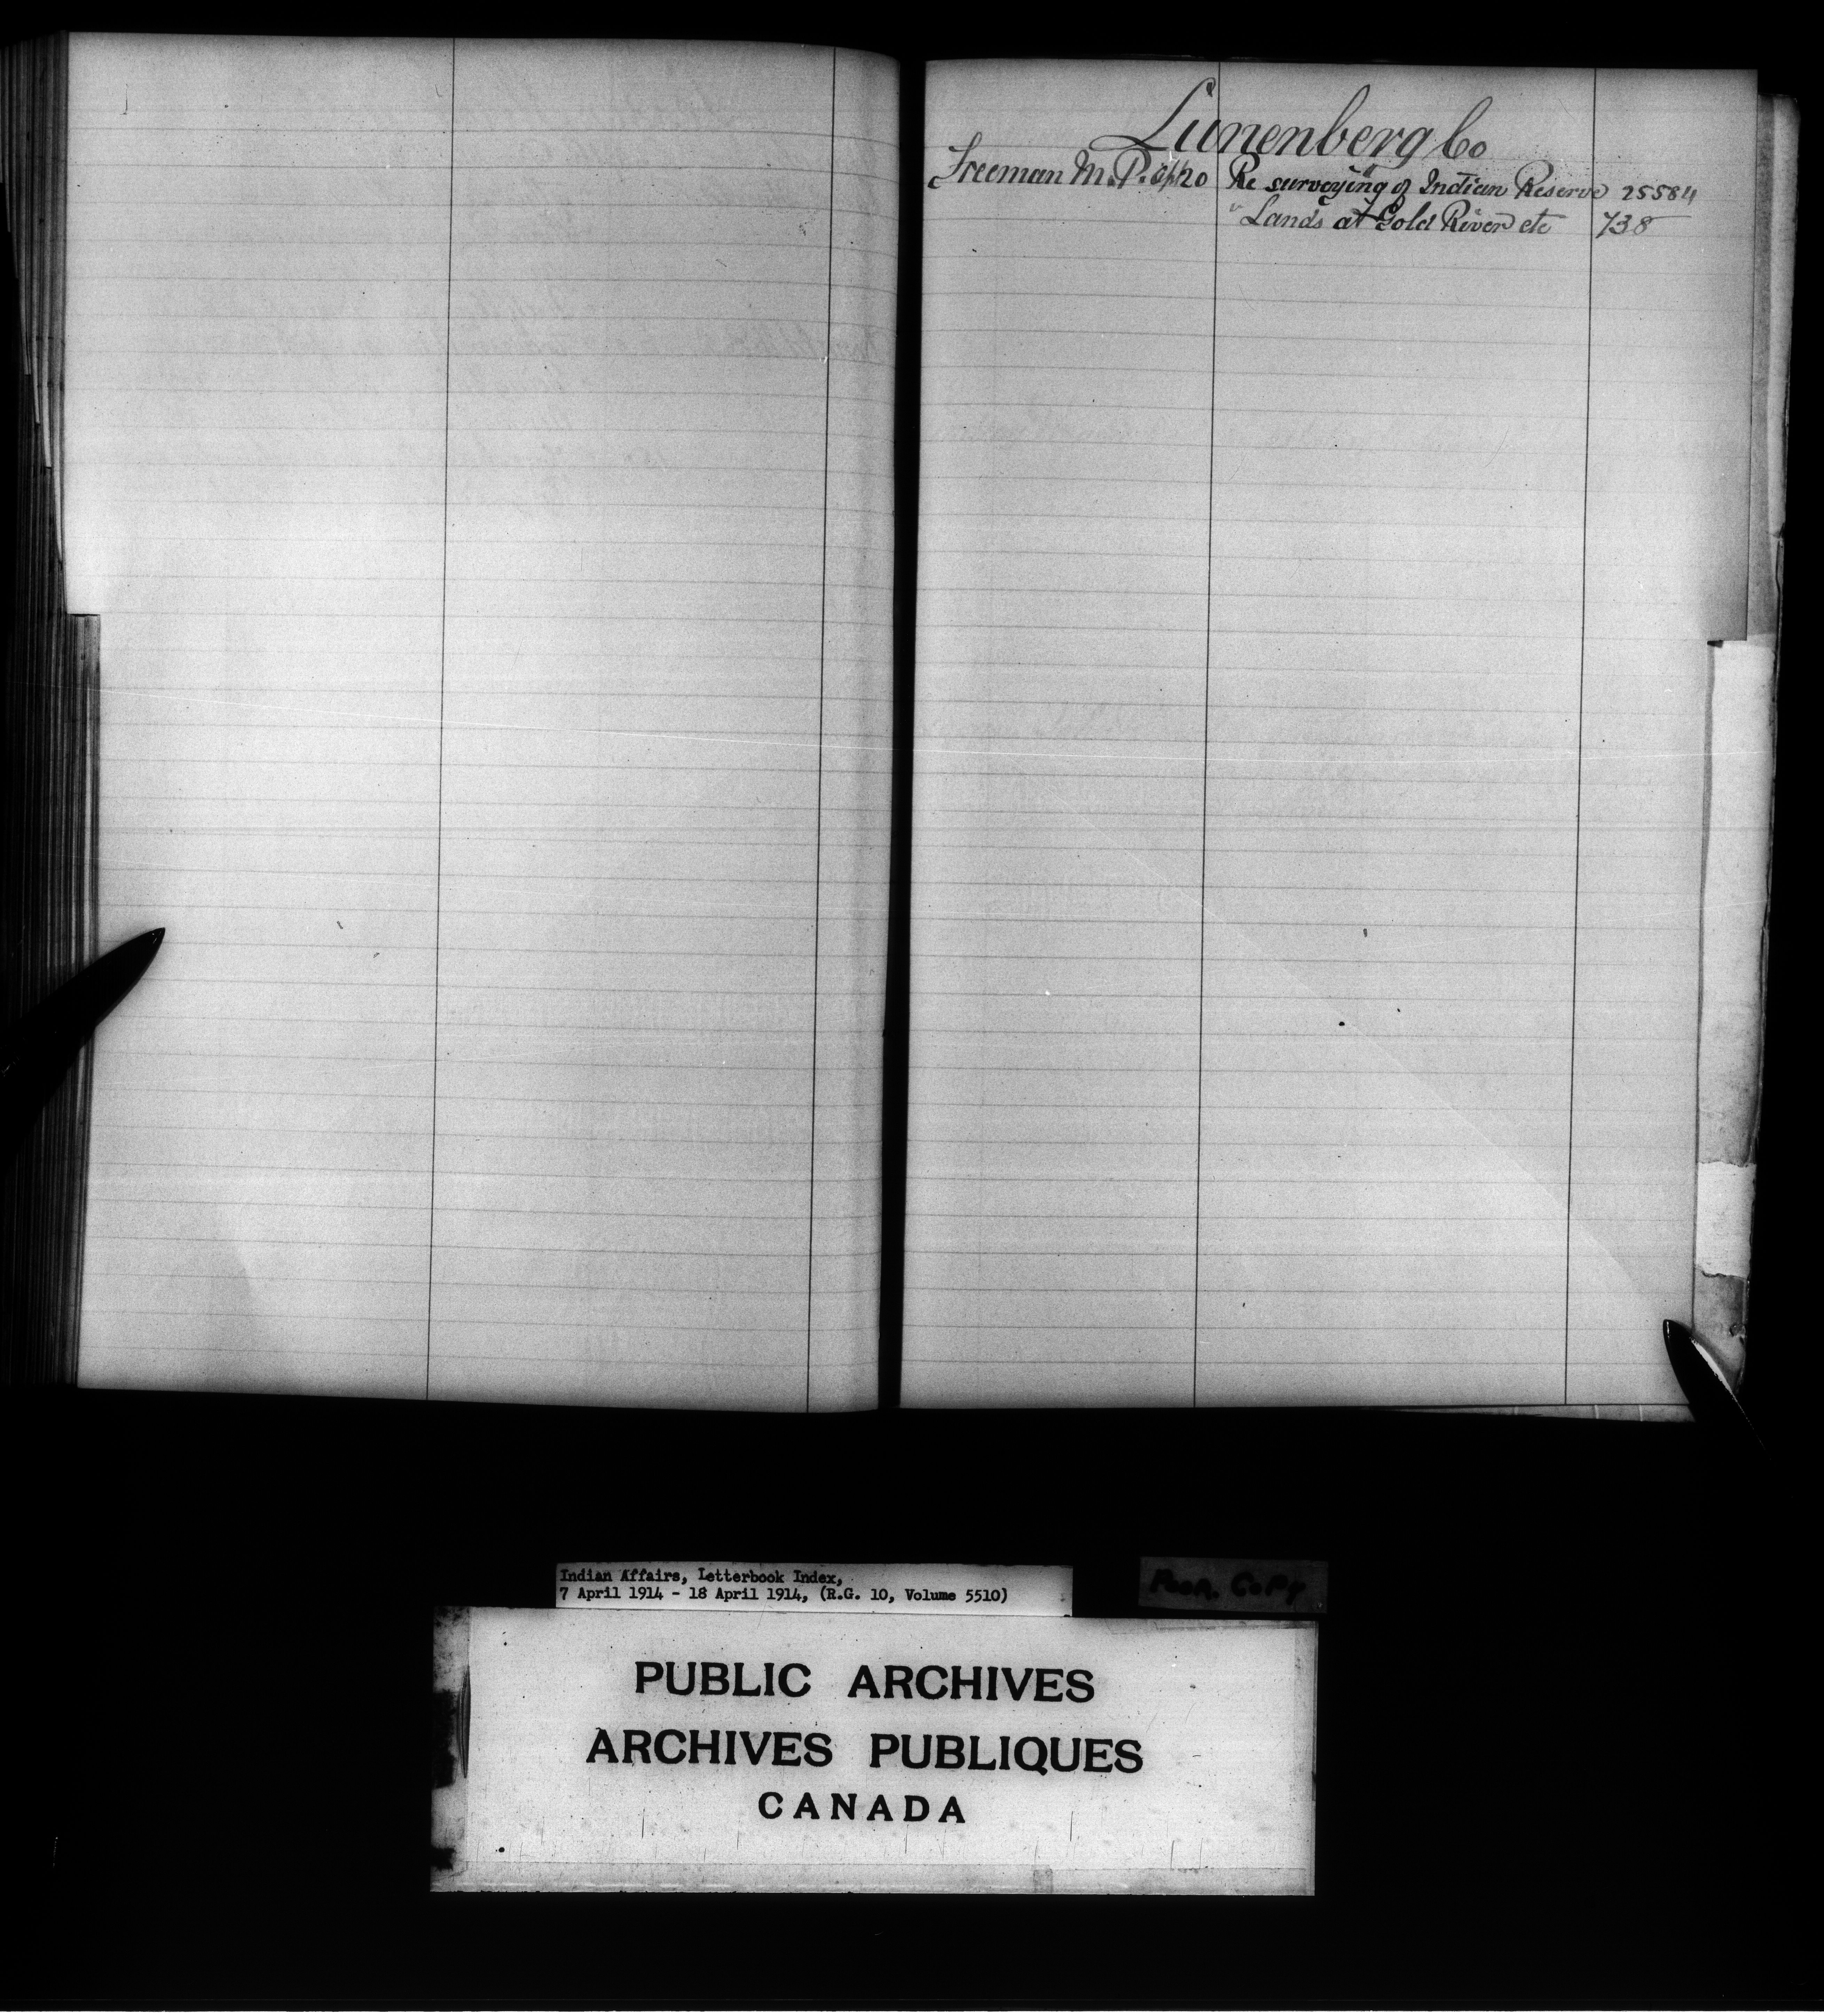 Lunenberg Co
Freeman M.P. Apl 20 Re surveying of Indian Reserve 25584
" Lands at Gold River etc 738
Indian Affairs, Letterbook Index,
7 April 1914 - 18 April 1914, (R.G. 10, Volume 5510)
POOR COPY
PUBLIC ARCHIVES
ARCHIVES PUBLIQUES
CANADA